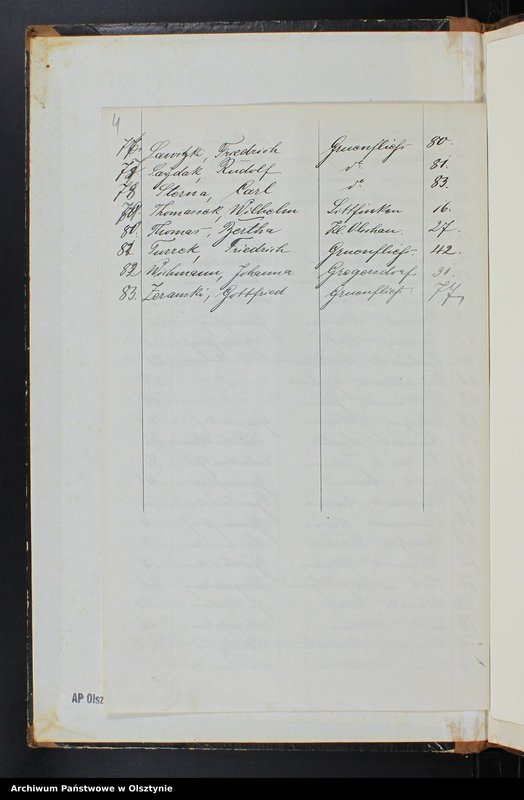 4
76. Sawitzki, Friedrich Gruenfliess 80.
77 Saydak, Rudolf do 81.
78 Sterna, Carl do 83.
79. Thomascek, Wilhelm Littfinken 16.
80. Thomas, Bertha Kl. 27.
81 Turrek, Friedrich Gruenfliess 42.
82 Wichmann, Johanna Gregersdorf 31.
83. Zeranski, Gottfried Gruenfliess 77
AP Olsz
Archiwum Państwowe w Olsztynie